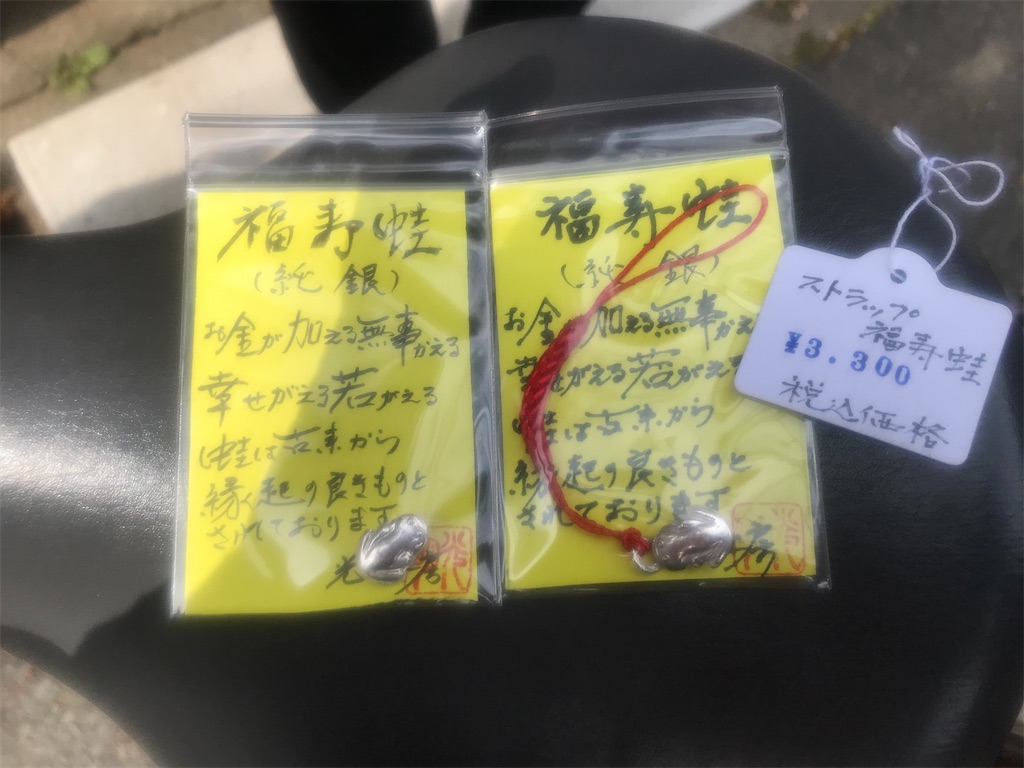 福寿蛙
(純銀)
お金が加える無事かえる
幸せがえる若がえる
蛙は古来から
縁起の良きものと
されております
光
福寿蛙
(純銀)
お金 加える無事かえ
幸せがえる若がえ
蛙は古来から
縁起の良きものと
されております
彦
ストラップ
福寿蛙
¥3.300
税込価格